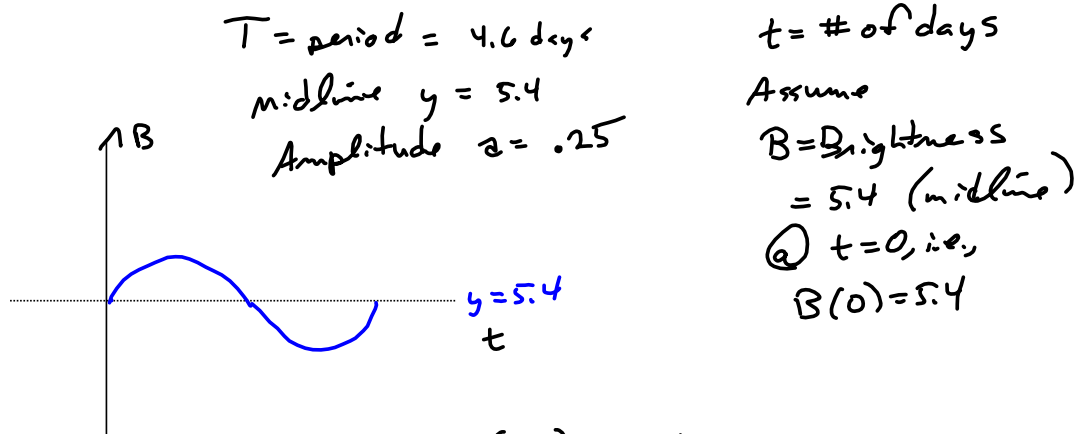 T = period = 4.6 days
midline y = 5.4
Amplitude a = .25
t = # of days
Assume
B = Brightness
= 5.4 (midline)
@ t=0, i.e.,
B(0) = 5.4
B
y = 5.4
t